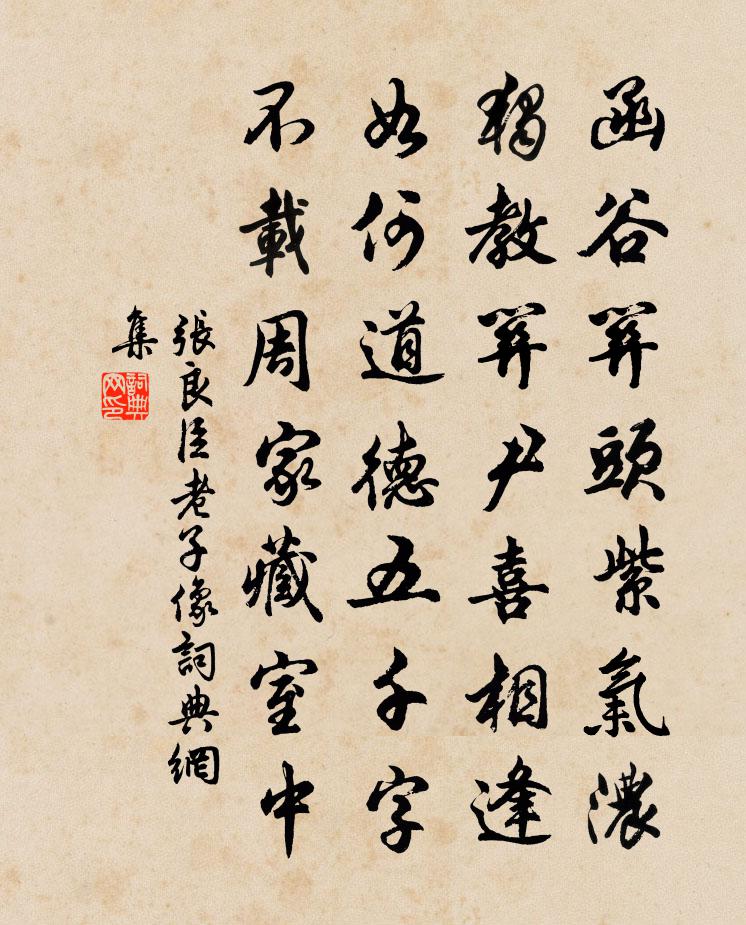 函谷關頭紫氣濃
獨教關尹喜相逢
如何道德五千字
不載周家藏室中
張良臣老子像詞典網
集
詞典網印